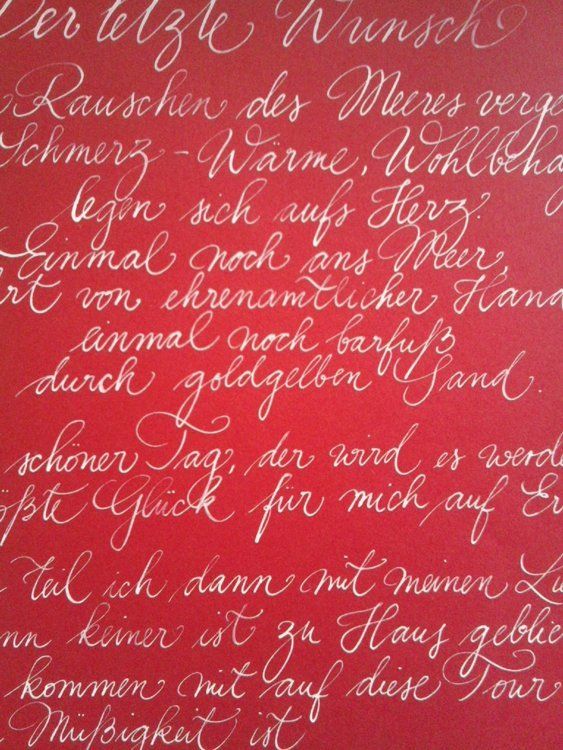 Der letzte Wunsch
Rauschen des Meeres verge
Schmerz - Wärme, Wohlbeha
legen sich aufs Herz.
Einmal noch ans Meer,
rt von ehrenamtlicher Hand
einmal noch barfuß
durch goldgelben Sand.
schöner Tag, der wird es werde
ößte Glück für mich auf Er
teil ich dann mit meinen Li
nn keiner ist zu Haus geblie
kommen mit auf diese Tour
Müßigkeit ist